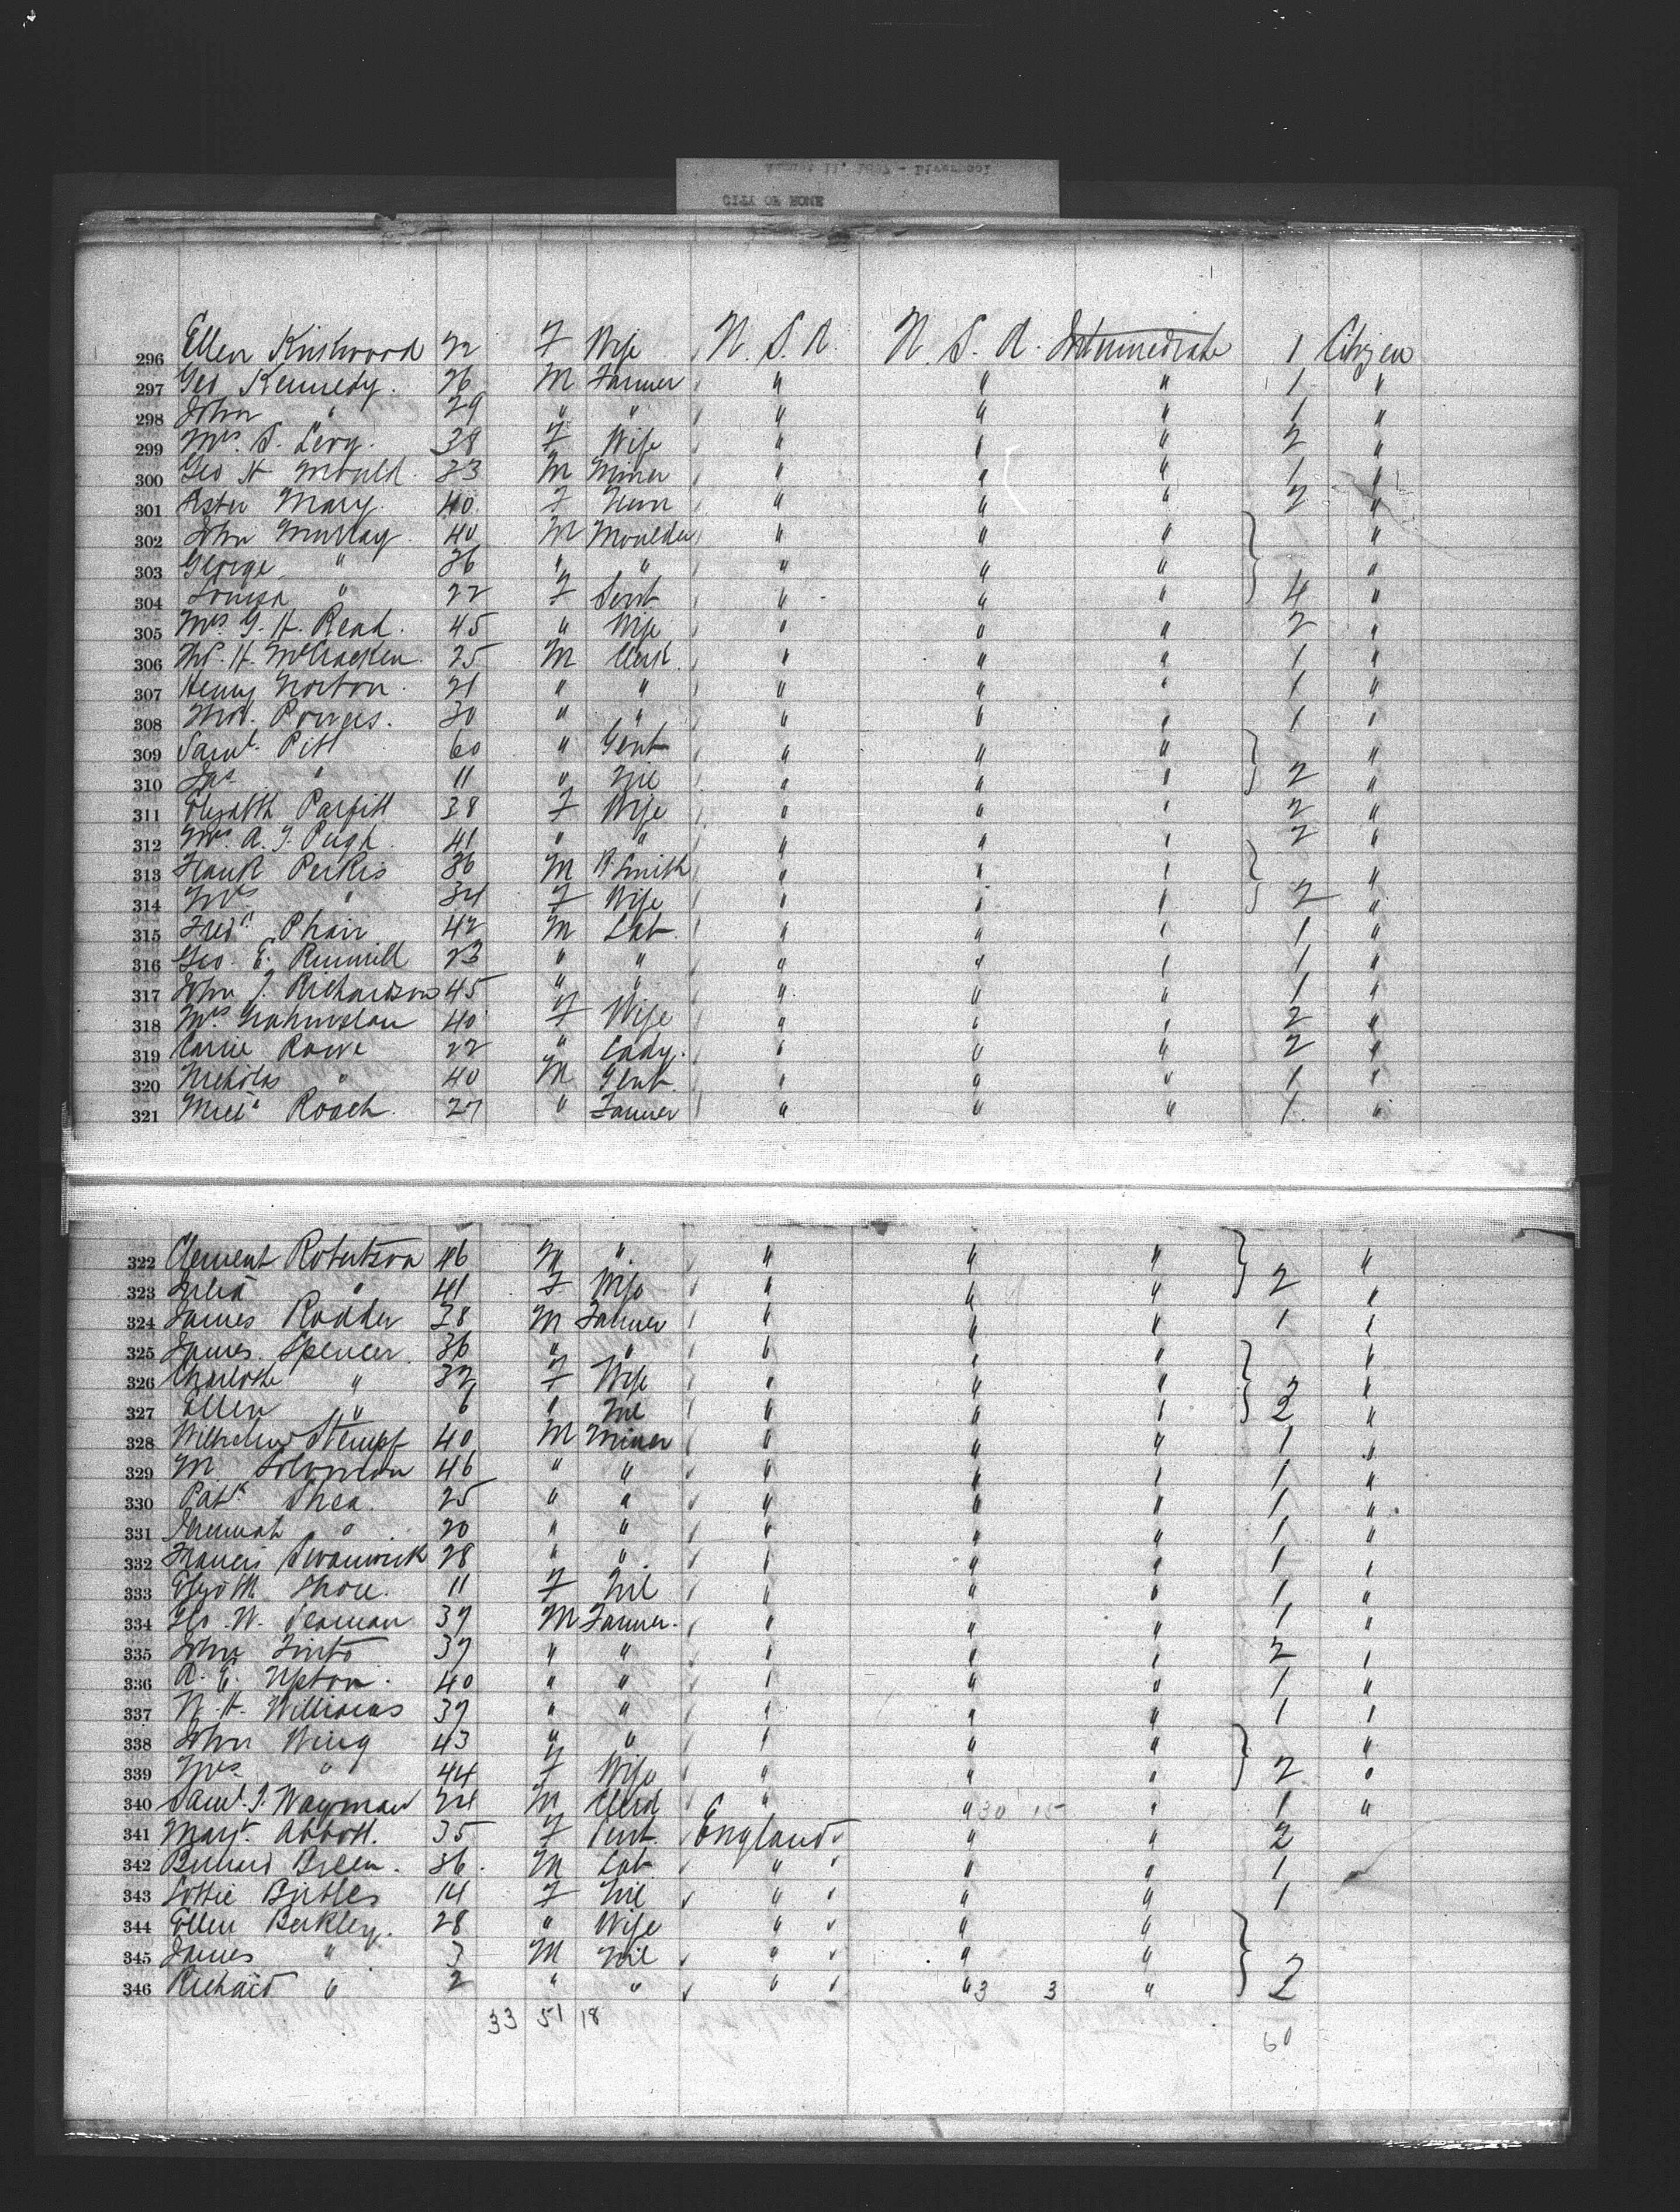 CITY OF ROME
296 Ellen Kirkwood 22 F Wife U. S. A. U. S. A. Intermediate 1 Citizen
297 Geo Kennedy. 26 M Farmer " " " 1 "
298 John " 29 " " " " " 1 "
299 Mrs. S. Levy. 38 F Wife " " " 2 "
300 Geo H Mould. 33 M Miner " " " 1 "
301 Mary 40 F " " " 2 "
302 John Murray. 40 M Moulder " " " "
303 George " 36 " " " " " "
304 Louisa " 22 F Servt " " " 4 "
305 Mrs. G. H. Read. 45 " Wife " " " 2 "
306 H. McCracken. 25 M Clerk. " " " 1 "
307 Henry Norton. 21 " " " " " 1 "
308 Thos. Powers. 30 " " " " " 1 "
309 Saml. Pitt 60 " Gent " " " "
310 Jas " 11 " Nil " " " 2 "
311 Elizabth Parfitt 38 F Wife " " " 2 "
312 Mrs. A. J. Pugh. 41 " " " " " 2 "
313 Frank Perkis 36 M B. Smith " " " "
314 Mrs " 34 F Wife " " " 2 "
315 Fredk. Phair 42 M Lab. " " " 1 "
316 Geo. E. Rummill 23 " " " " " 1 "
317 John J. Richardson 45 " " " " " 1 "
318 Mrs. 40 F Wife " " " 2 "
319 Carrie Rowe 22 " Lady. " " " 2 "
320 Nicholas " 40 M Gent. " " " 1 "
321 Micl. Roach. 27 " Farmer " " " 1. "
322 Clement Robertson 46 M " " " " "
323 Julia " 41 F Wife " " " 2 "
324 James Rodder 38 M Farmer " " " 1 "
325 James Spencer. 36 " " " " " "
326 Charlotte " 32 F Wife " " " "
327 Ellen " 6 " Nil " " " 2 "
328 Wilhelm Stempf 40 M Miner " " " 1 "
329 M Solomon 46 " " " " " 1 "
330 Patk. Shea. 25 " " " " " 1 "
331 Jeremiah " 20 " " " " " 1 "
332 Francis Swanwick 28 " " " " " 1 "
333 Elizbth Shore. 11 F Nil " " " 1 "
334 Geo. W. Seaman 37 M Farmer. " " " 1 "
335 John Tinto 37 " " " " " 2 "
336 A. E. Upton. 40 " " " " " 1 "
337 W. H. Williams 37 " " " " " 1 "
338 John Wing 43 " " " " " "
339 Mrs " 44 F Wife " " " 2 "
340 Saml. J. Wayman 24 M Clerk " " 30 15 " 1 "
341 Margt. Abbott. 35 F Servt. England " " 2
342 Bernard Breen. 36. M Lab " " " 1
343 Lottie Birtles 14 F Nil " " " 1
344 Ellen Berkley. 28 " Wife " " "
345 James " 3 M Nil " " "
346 Richard " 2 " " " " 3 3 " 2
33 51 18
60